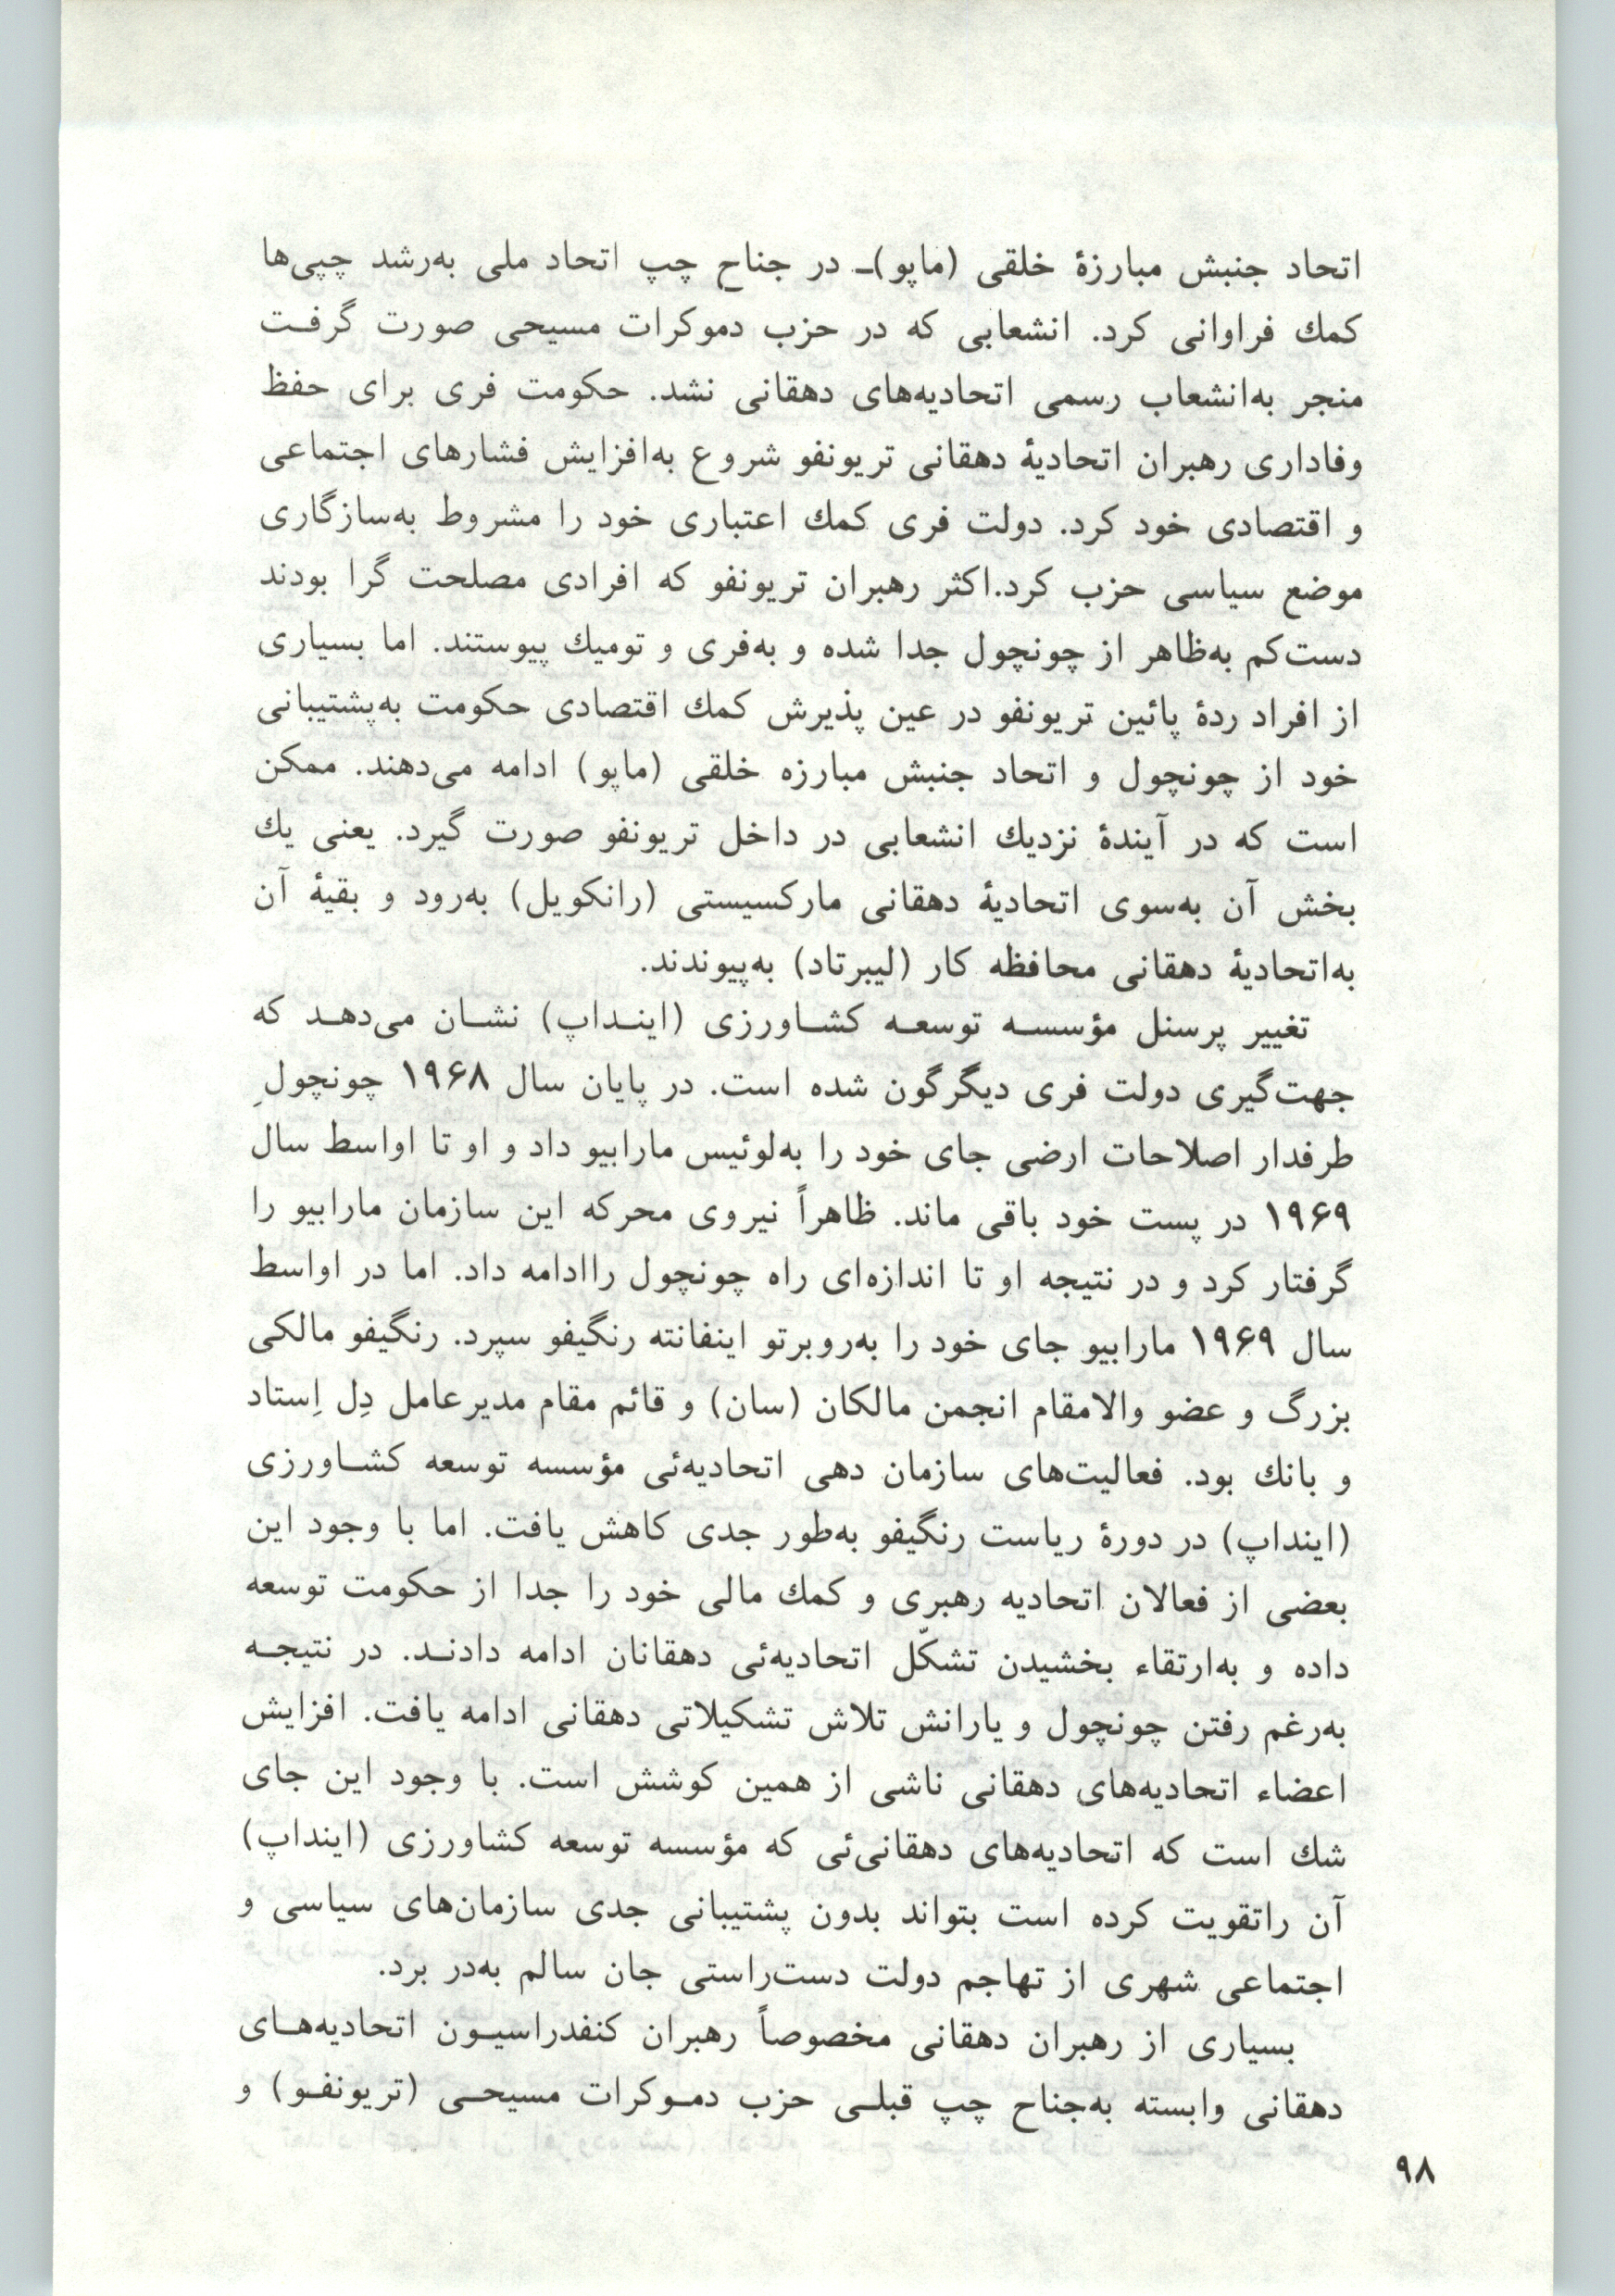 اتحاد جنبش مبارزهٔ خلقی (ماپو)ـ در جناح چپ اتحاد ملی به‌رشد چپی‌ها
کمك فراوانی کرد. انشعابی که در حزب دموکرات مسیحی صورت گرفـت
منجر به‌انشعاب رسمی اتحادیه‌های دهقانی نشد. حکومت فری برای حفظ
وفاداری رهبران اتحادیهٔ دهقانی تریونفو شروع به‌افزایش فشارهای اجتماعی
و اقتصادی خود کرد. دولت فری کمك اعتباری خود را مشروط به‌سازگاری
موضع سیاسی حزب کرد.اکثر رهبران تریونفو که افرادی مصلحت گرا بودند
دست‌کم به‌ظاهر از چونچول جدا شده و به‌فری و تومیك پیوستند. اما بسیاری
از افراد ردهٔ پائین تریونفو در عین پذیرش کمك اقتصادی حکومت به‌پشتیبانی
خود از چونچول و اتحاد جنبش مبارزه خلقی (ماپو) ادامه می‌دهند. ممکن
است که در آیندهٔ نزدیك انشعابی در داخل تریونفو صورت گیرد. یعنی یك
بخش آن به‌سوی اتحادیهٔ دهقانی مارکسیستی (رانکویل) به‌رود و بقیهٔ آن
به‌اتحادیهٔ دهقانی محافظه کار (لیبرتاد) به‌پیوندند.
تغییر پرسنل مؤسسـه توسعـه کشـاورزی (اینـداپ) نشـان می‌دهـد که
جهت‌گیری دولت فری دیگرگون شده است. در پایان سال ۱۹۶۸ چونچولِ
طرفدار اصلاحات ارضی جای خود را به‌لوئیس مارابیو داد و او تا اواسط سال
۱۹۶۹ در پست خود باقی ماند. ظاهراً نیروی محرکه این سازمان مارابیو را
گرفتار کرد و در نتیجه او تا اندازه‌ای راه چونچول راادامه داد. اما در اواسط
سال ۱۹۶۹ مارابیو جای خود را به‌روبرتو اینفانته رنگیفو سپرد. رنگیفو مالکی
بزرگ و عضو والامقام انجمن مالکان (سان) و قائم مقام مدیرعامل دِل اِستاد
و بانك بود. فعالیت‌های سازمان دهی اتحادیه‌ئی مؤسسه توسعه کشـاورزی
(اینداپ) در دورهٔ ریاست رنگیفو به‌طور جدی کاهش یافت. اما با وجود این
بعضی از فعالان اتحادیه رهبری و کمك مالی خود را جدا از حکومت توسعه
داده و به‌ارتقاء بخشیدن تشکّل اتحادیه‌ئی دهقانان ادامه دادنـد. در نتیجـه
به‌رغم رفتن چونچول و یارانش تلاش تشکیلاتی دهقانی ادامه یافت. افزایش
اعضاء اتحادیه‌های دهقانی ناشی از همین کوشش است. با وجود این جای
شك است که اتحادیه‌های دهقانی‌ئی که مؤسسه توسعه کشاورزی (اینداپ)
آن راتقویت کرده است بتواند بدون پشتیبانی جدی سازمان‌های سیاسی و
اجتماعی شهری از تهاجم دولت دست‌راستی جان سالم به‌در برد.
بسیاری از رهبران دهقانی مخصوصاً رهبران کنفدراسیـون اتحادیه‌هـای
دهقانی وابسته به‌جناح چپ قبلـی حزب دمـوکرات مسیحـی (تریونفـو) و
۹۸